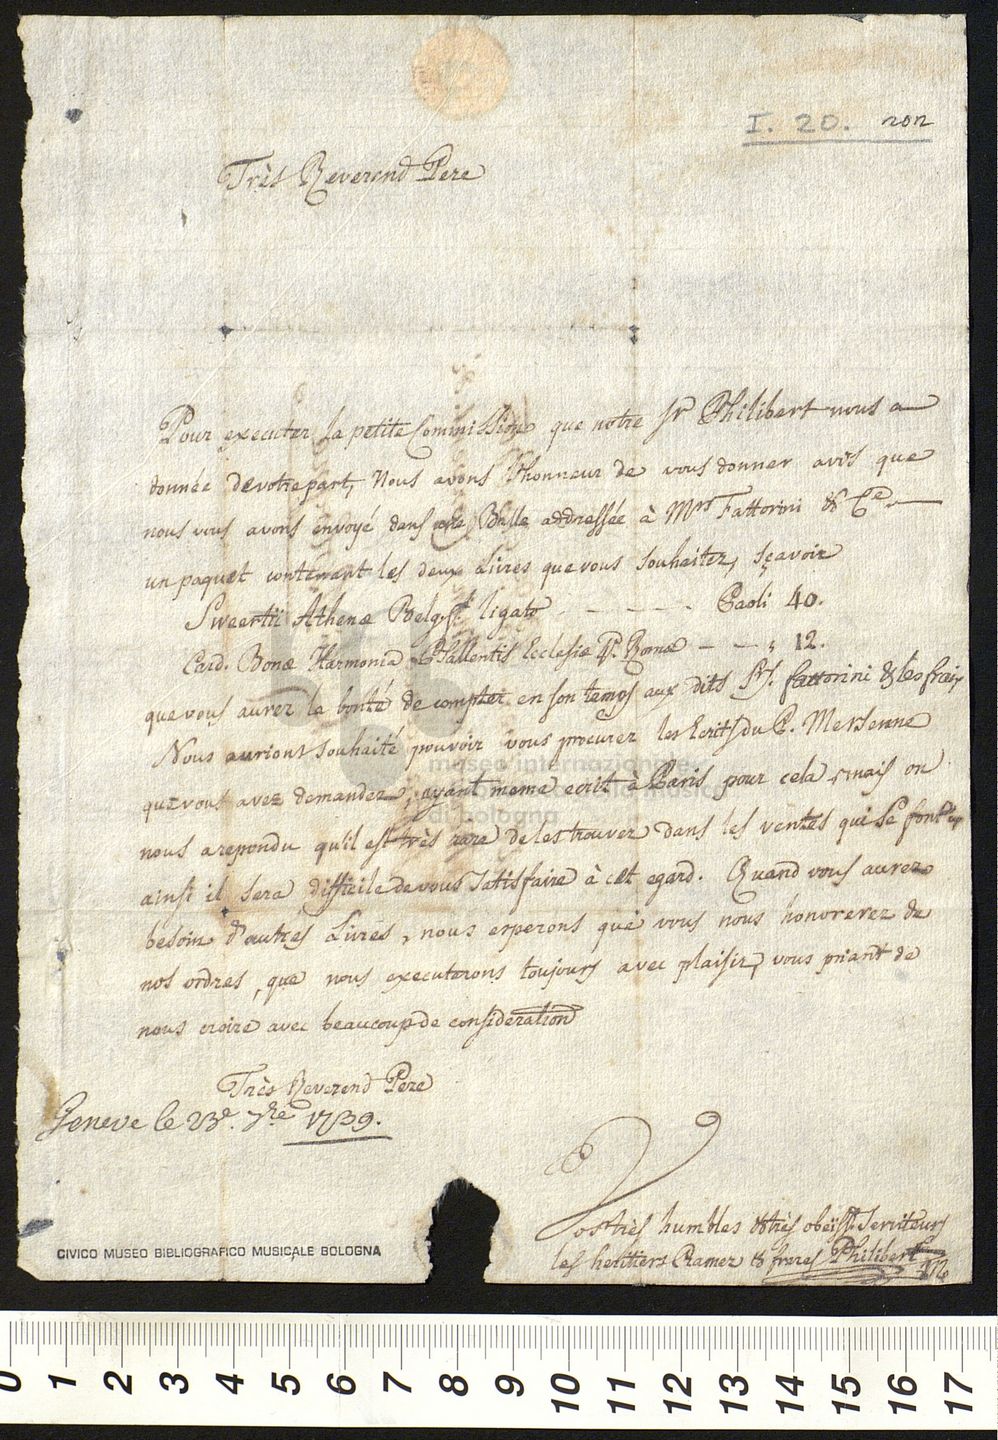 I. 20. 202
Très Reverend Pere
Pour executer la petite Commission que notre Sr. Philibert nous a
donnée de votre part, Nous avons l'honneur de vous donner avis que
nous vous avons envoyé dans une Balle addressée à Mrs. Fattorini & Ce.
un paquet contenant les deux Livres que vous souhaitez, sçavoir
Sweertii Athenæ Belgy. ligato - - - - Paoli 40.
Card. Bonæ Harmonia Psallentis Ecclesiæ Romæ - - - „ 12.
que vous aurez la bonté de compter en son temps aux dits Srs. fattorini & les frais
Nous auriont souhaité pouvoir vous procurer les Ecrits du P. Mersenne
que vous avez demandez, ayant meme ecrit à Paris pour cela, mais on
nous a repondu qu'il est très rare de les trouver dans les ventes qui se font
ainsi il sera difficile de vous satisfaire à cet egard. Quand vous aurez
besoin d'autres Livres, nous esperons que vous nous honorerez de
nos ordres, que nous executerons toujours avec plaisir, vous priant de
nous croire avec beaucoup de consideration
Très Reverend Pere
Geneve le 23e. 7bre 1739.
Vos très humbles & très obeïsts. Serviteurs
les heritiers Cramer & freres Philibert
museo internazionale
di bologna
CIVICO MUSEO BIBLIOGRAFICO MUSICALE BOLOGNA
0 1 2 3 4 5 6 7 8 9 10 11 12 13 14 15 16 17